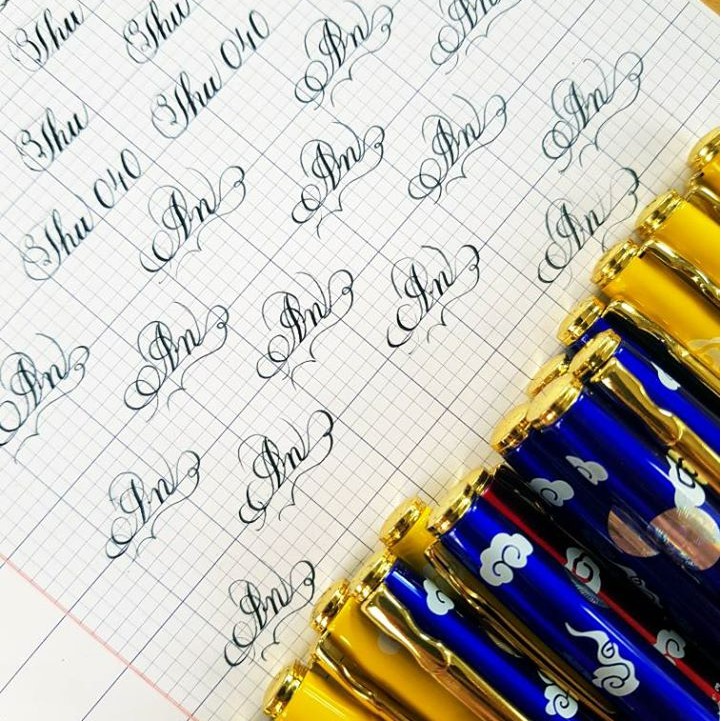 Thu
Thu
An
An
Thu
Thu 040
An
An
An
Thu 040
An
An
An
An
An
An
An
An
An